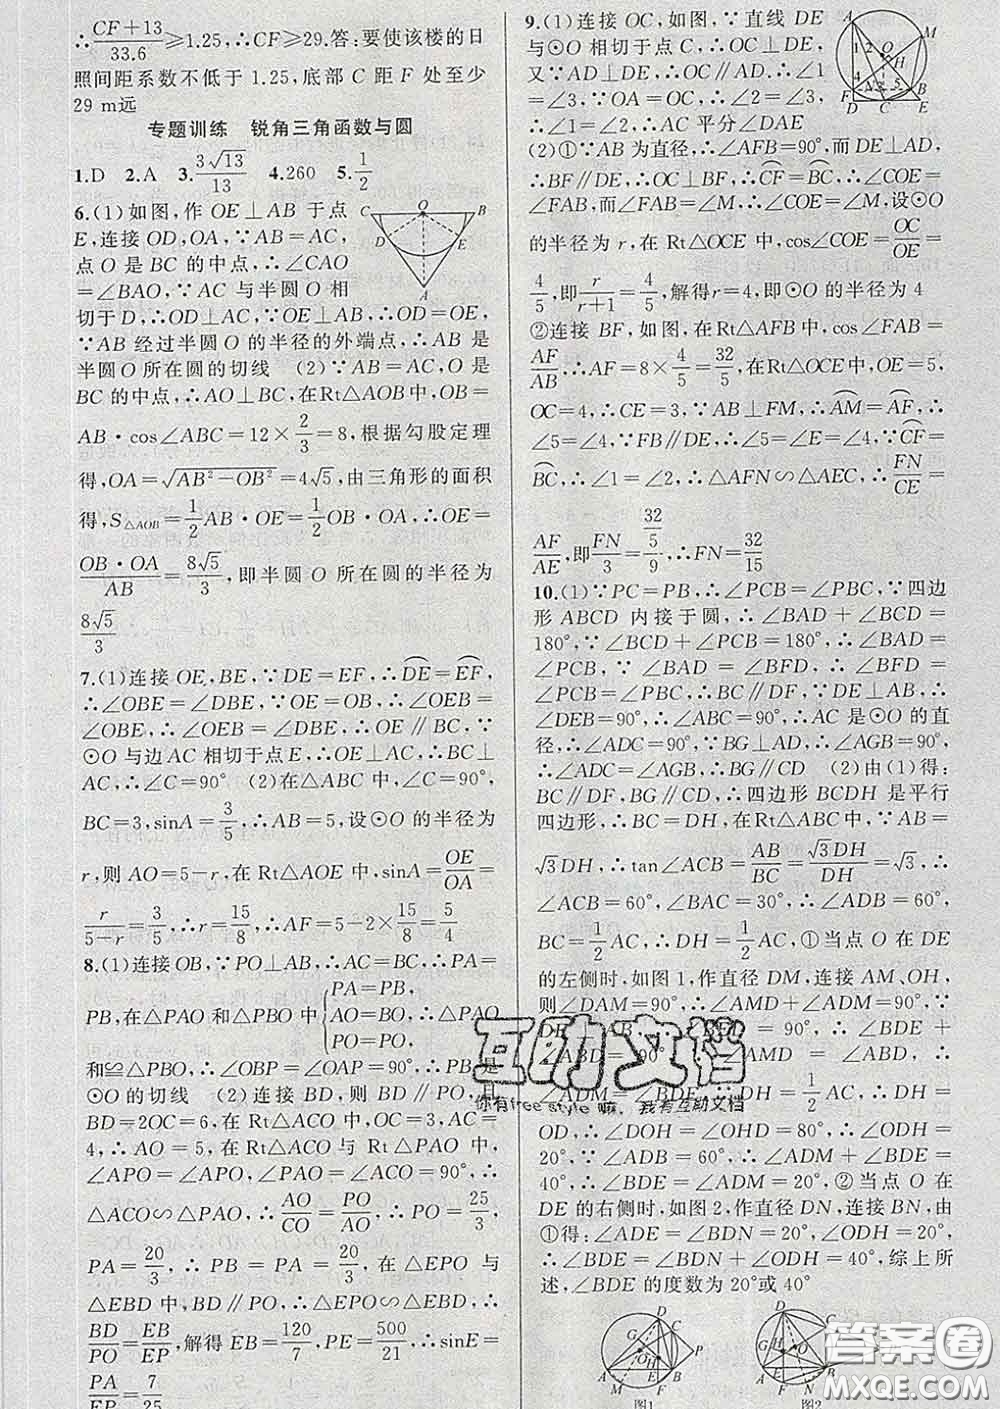 ∴(CF+13)/33.6≥1.25,∴CF≥29.答:要使该楼的日
照间距系数不低于1.25,底部C距F处至少
29 m远
专题训练 锐角三角函数与圆
1.D 2.A 3.3√13/13 4.260 5.1/2
6.(1)如图,作OE⊥AB于点
E,连接OD,OA,∵AB=AC,
点O是BC的中点,∴∠CAO
=∠BAO,∵AC与半圆O相
切于D,∴OD⊥AC,∵OE⊥AB,∴OD=OE,
∵AB经过半圆O的半径的外端点,∴AB是
半圆O所在圆的切线 (2)∵AB=AC,O是
BC的中点,∴AO⊥BC,在Rt△AOB中,OB=
AB·cos∠ABC=12×2/3=8,根据勾股定理
得,OA=√(AB²-OB²)=4√5,由三角形的面积
得,S△AOB=1/2AB·OE=1/2OB·OA,∴OE=
OB·OA/AB=8√5/3,即半圆O所在圆的半径为
8√5/3
7.(1)连接OE,BE,∵DE=EF,∴DE⌒=EF⌒,
∴∠OBE=∠DBE,∵OE=OB,∴∠OEB=
∠OBE,∴∠OEB=∠DBE,∴OE∥BC,∵
⊙O与边AC相切于点E,∴OE⊥AC,∴BC⊥
AC,∴∠C=90° (2)在△ABC中,∠C=90°,
BC=3,sinA=3/5,∴AB=5,设⊙O的半径为
r,则AO=5-r,在Rt△AOE中,sinA=OE/OA=
r/(5-r)=3/5,∴r=15/8,∴AF=5-2×15/8=5/4
8.(1)连接OB,∵PO⊥AB,∴AC=BC,∴PA=
PB,在△PAO和△PBO中{PA=PB,
AO=BO,
PO=PO,
∴△PAO
和≌△PBO,∴∠OBP=∠OAP=90°,∴PB是
⊙O的切线 (2)连接BD,则BD∥PO,且
BD=2OC=6,在Rt△ACO中,OC=3,AC=
4,∴AO=5,在Rt△ACO与Rt△PAO中,
∠APO=∠APO,∠PAO=∠ACO=90°,∴
△ACO∽△PAO,∴AO/CO=PO/AO,∴PO=25/3,
PA=20/3,∴PB=PA=20/3,在△EPO与
△EBD中,BD∥PO,∴△EPO∽△EBD,∴
BD/PO=EB/EP,解得EB=120/7,PE=500/21,∴sinE=
PA/EP=7/25
9.(1)连接OC,如图,∵直线DE
与⊙O相切于点C,∴OC⊥DE,
又∵AD⊥DE,∴OC∥AD,∴∠1
=∠3,∵OA=OC,∴∠2=∠3,
∴∠1=∠2,∴AC平分∠DAE
(2)①∵AB为直径,∴∠AFB=90°,而DE⊥AD,
∴BF∥DE,∴OC⊥BF,∴CF⌒=BC⌒,∴∠COE=
∠FAB,而∠FAB=∠M,∴∠COE=∠M,设⊙O
的半径为r,在Rt△OCE中,cos∠COE=OC/OE=
4/5,即r/(r+1)=4/5,解得r=4,即⊙O的半径为4
②连接BF,如图,在Rt△AFB中,cos∠FAB=
AF/AB,∴AF=8×4/5=32/5,在Rt△OCE中,OE=5,
OC=4,∴CE=3,∵AB⊥FM,∴AM⌒=AF⌒,
∴∠5=∠4,∵FB∥DE,∴∠5=∠E=∠4,∵CF⌒=
BC⌒,∴∠1=∠2,∴△AFN∽△AEC,∴FN/CE=
AF/AE,即FN/3=(32/5)/9,∴FN=32/15
10.(1)∵PC=PB,∴∠PCB=∠PBC,∵四边
形ABCD内接于圆,∴∠BAD+∠BCD=
180°,∵∠BCD+∠PCB=180°,∴∠BAD=
∠PCB,∵∠BAD=∠BFD,∴∠BFD=
∠PCB=∠PBC,∴BC∥DF,∵DE⊥AB,∴
∠DEB=90°,∴∠ABC=90°,∴AC是⊙O的直
径,∴∠ADC=90°,∵BG⊥AD,∴∠AGB=90°,
∴∠ADC=∠AGB,∴BG∥CD (2)由(1)得:
BC∥DF,BG∥CD,∴四边形BCDH是平行
四边形,∴BC=DH,在Rt△ABC中,∵AB=
√3DH,∴tan∠ACB=AB/BC=√3DH/DH=√3,∴
∠ACB=60°,∠BAC=30°,∴∠ADB=60°,
BC=1/2AC,∴DH=1/2AC,①当点O在DE
的左侧时,如图1,作直径DM,连接AM、OH,
则∠DAM=90°,∴∠AMD+∠ADM=90°,∵
∠BDE+
∠ABD=90°,
∠AMD=∠ABD,∴
∠ADM=∠BDE,∵DH=1/2AC,∴DH=
OD,∴∠DOH=∠OHD=80°,∴∠ODH=
20°,∵∠ADB=60°,∴∠ADM+∠BDE=
40°,∴∠BDE=∠ADM=20°,②当点O在
DE的右侧时,如图2,作直径DN,连接BN,由
①得:∠ADE=∠BDN=20°,∠ODH=20°,
∴∠BDE=∠BDN+∠ODH=40°,综上所
述,∠BDE的度数为20°或40°
图1
图2
互助文档
你有free style嘛,我有互助文档
答案圈
MXQE.COM